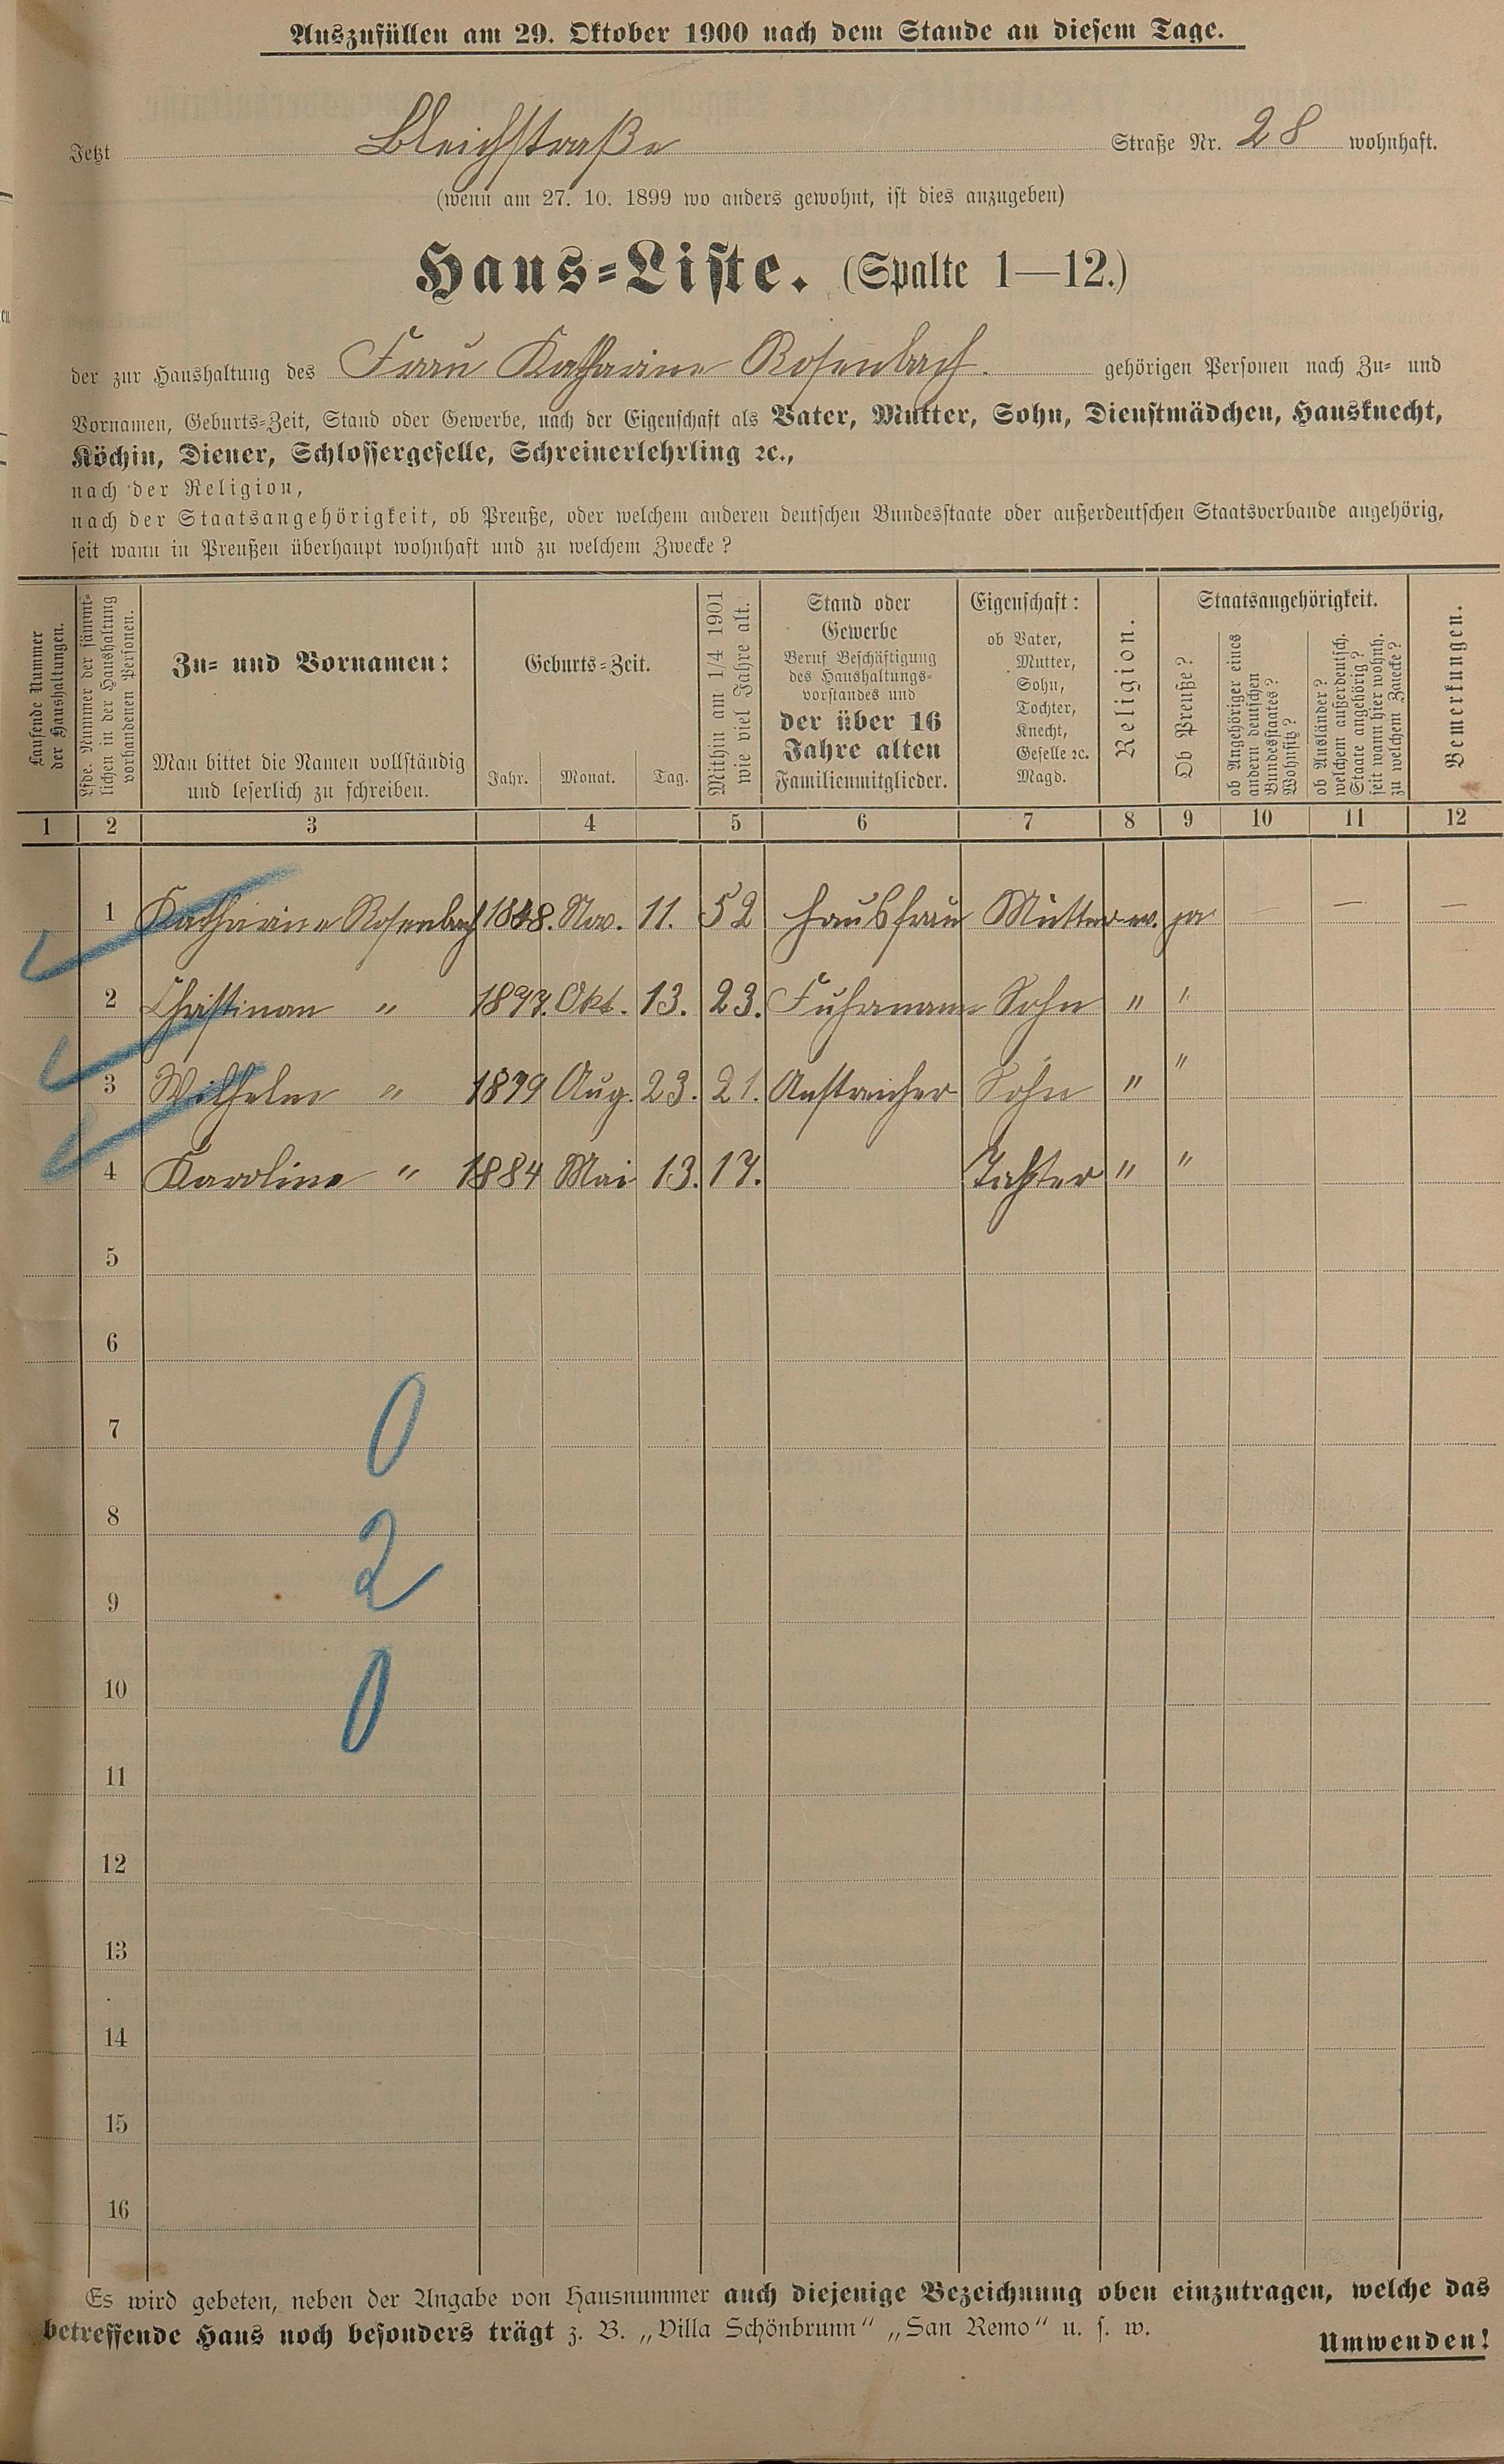 Auszufüllen am 29. Oktober 1900 nach dem Stande an diesem Tage.
Jetzt Bleichstraße Straße Nr. 28 wohnhaft.
(wenn am 27. 10. 1899 wo anders gewohnt, ist dies anzugeben)
Haus-Liste. (Spalte 1—12.)
der zur Haushaltung des Frau Katharine Rosenbach. gehörigen Personen nach Zu- und
Vornamen, Geburts-Zeit, Stand oder Gewerbe, nach der Eigenschaft als Vater, Mutter, Sohn, Dienstmädchen, Hausknecht,
Köchin, Diener, Schlossergeselle, Schreinerlehrling ꝛc.,
nach der Religion,
nach der Staatsangehörigkeit, ob Preuße, oder welchem anderen deutschen Bundesstaate oder außerdeutschen Staatsverbande angehörig,
seit wann in Preußen überhaupt wohnhaft und zu welchem Zwecke?
Laufende Nummer
der Haushaltungen.
Lfde. Nummer der sämmt-
lichen in der Haushaltung
vorhandenen Personen.
Zu- und Vornamen:
Man bittet die Namen vollständig
und leserlich zu schreiben.
Geburts-Zeit.
Jahr. Monat. Tag.
Mithin am 1/4 1901
wie viel Jahre alt.
Stand oder
Gewerbe
Beruf Beschäftigung
des Haushaltungs-
vorstandes und
der über 16
Jahre alten
Familienmitglieder.
Eigenschaft:
ob Vater,
Mutter,
Sohn,
Tochter,
Knecht,
Geselle ꝛc.
Magd.
Religion.
Staatsangehörigkeit.
Ob Preuße?
ob Angehöriger eines
andern deutschen
Bundesstaates?
Wohnsitz?
ob Ausländer?
welchem außerdeutsch.
Staate angehörig?
seit wann hier wohnh.
zu welchem Zwecke?
Bemerkungen.
1 2 3 4 5 6 7 8 9 10 11 12
1 Katharine Rosenbach 1848. Nov. 11. 52 Hausfrau Mutter ev. ja — — —
2 Christian " Okt. 13. 23. Fuhrmann Sohn " "
3 Wilhelm " 1879 Aug. 23. 21. Anstreicher Sohn " "
4 Karoline " 1884 Mai 13. 17. Tochter " "
5
6
7
0
8
2
9
10
0
11
12
13
14
15
16
Es wird gebeten, neben der Angabe von Hausnummer auch diejenige Bezeichnung oben einzutragen, welche das
betreffende Haus noch besonders trägt z. B. „Villa Schönbrunn" „San Remo" u. s. w.
Umwenden!